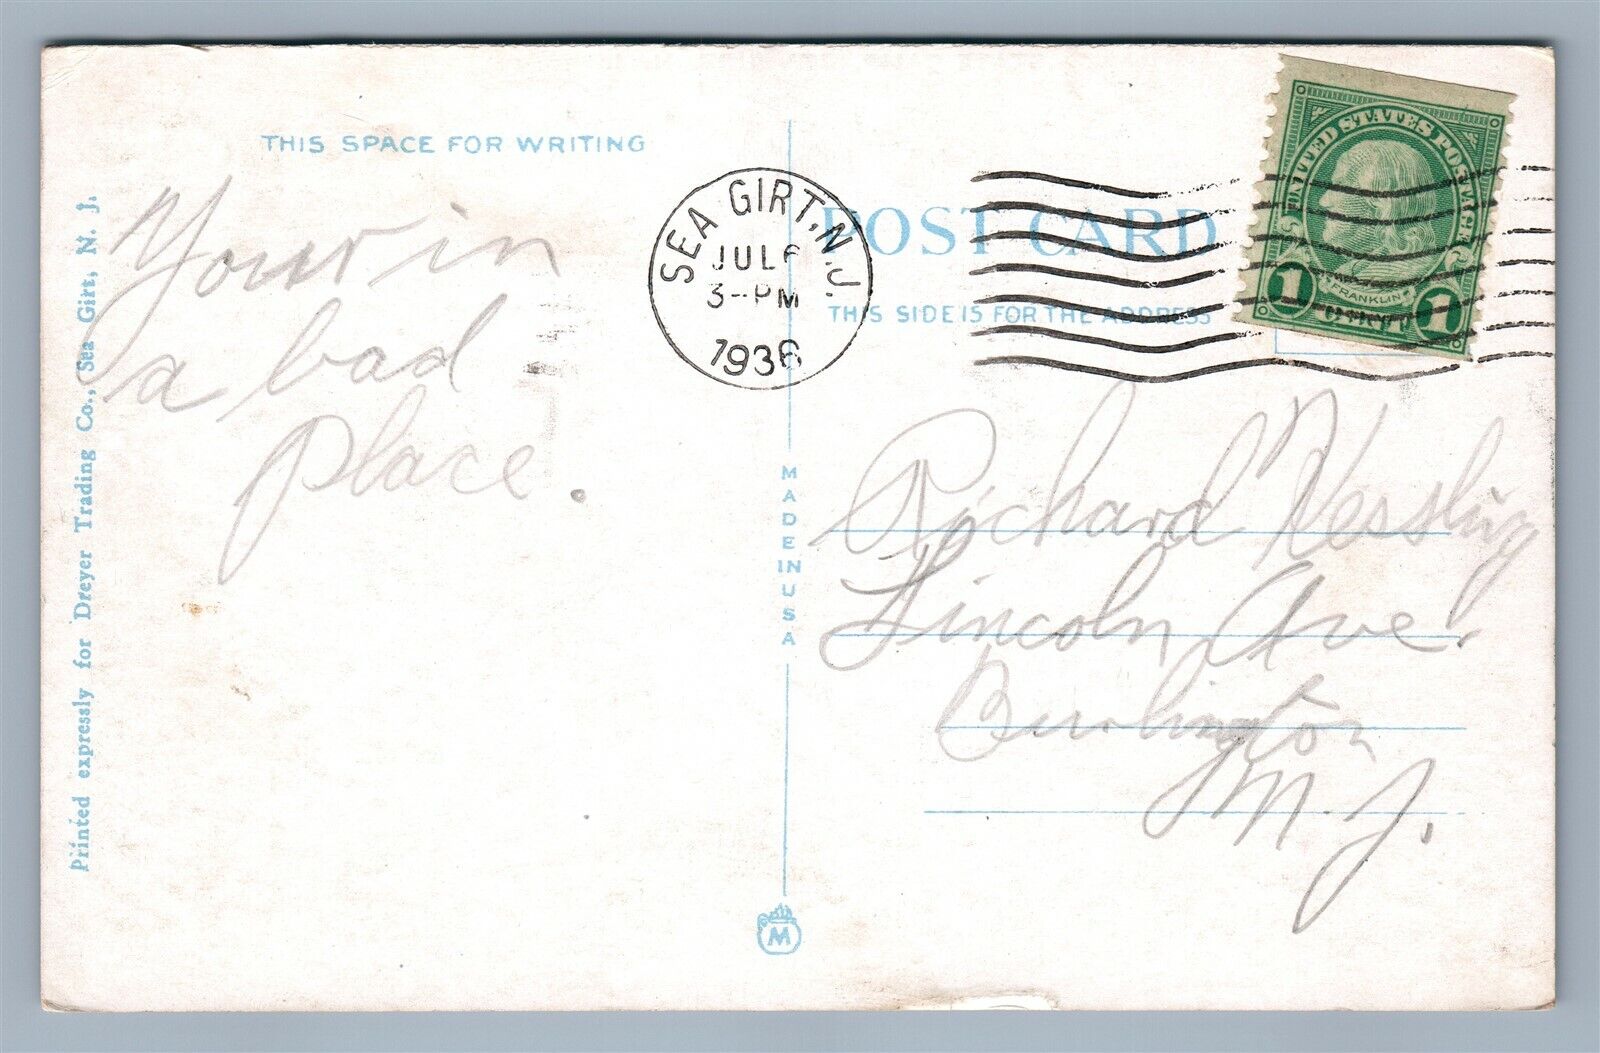 THIS SPACE FOR WRITING
Your in
a bad
place.
Printed expressly for Dreyer Trading Co., Sea Girt, N. J.
MADE IN USA
M
SEA GIRT, N.J.
JUL 6
3-PM
1936
POST CARD
THIS SIDE IS FOR THE ADDRESS
UNITED STATES POSTAGE
FRANKLIN
1 CENT 1
Richard Nessling
Lincoln Ave.
Burlington
N. J.